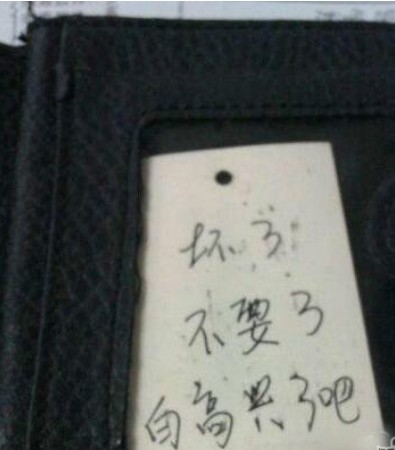 坏了
不要了
白高兴了吧